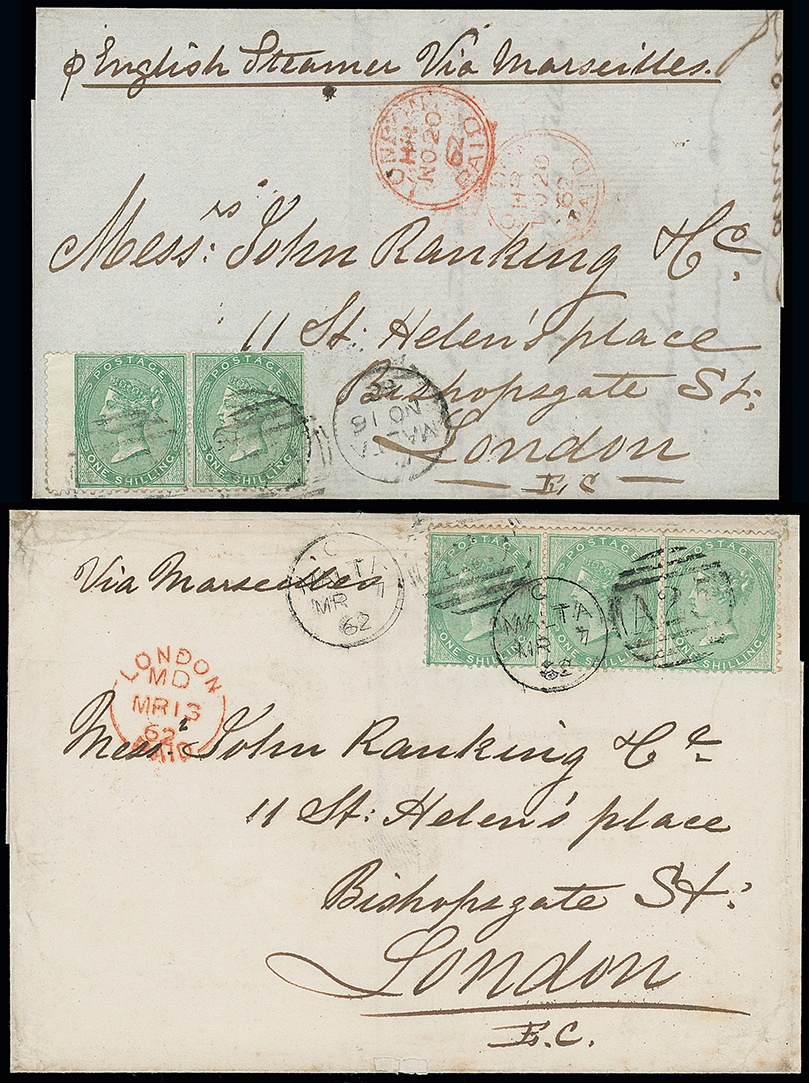 p English Steamer Via Marseilles.
LONDON
HR
NO 20
62
PAID
HR
NO 20
62
PAID
Mess.rs John Ranking & Co.
11 St: Helen's place
Bishopsgate St:
London
E.C
POSTAGE
ONE SHILLING
POSTAGE
ONE SHILLING
MALTA
NO 16
62
Via Marseilles.
C
MALTA
MR 7
62
POSTAGE
ONE SHILLING
POSTAGE
ONE SHILLING
POSTAGE
ONE SHILLING
C
MALTA
MR 7
62
A25
LONDON
MD
MR 13
62
PAID
Mess.rs John Ranking & Co.
11 St: Helen's place
Bishopsgate St:
London
E.C.